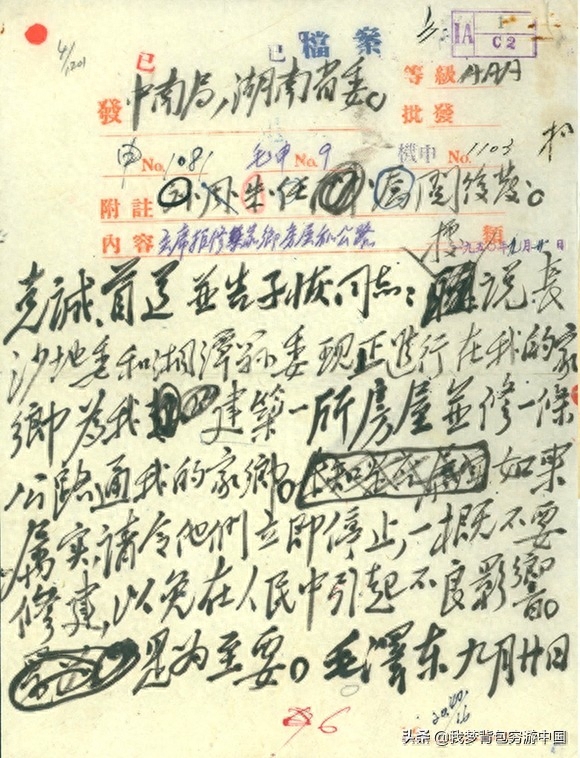 1
IA
C2
4/1201
已
已
檔案
發 中南局，湖南省委。
等級 AAA
批發
申No.1081 毛申No.9
機申No.1103
附註
朱任 閱後發。
內容
主席拒修築家鄉房屋和公路
一九五〇年九月廿日
類
克誠、首道並告子恢同志： 據說長
沙地委和湘潭縣委現正進行在我的家
鄉為我 建築一所房屋並修一條
公路通我的家鄉。 如果
屬實，請令他們立即停止，一概不要
修建，以免在人民中引起不良影響。
是為至要。毛澤東 九月廿日
6
头条 @我梦背包穷游中国